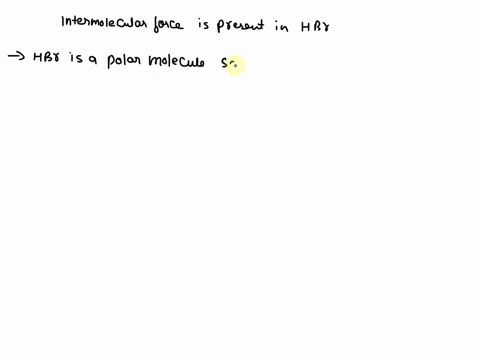 Intermolecular force is present in HBr
→ HBr is a polar molecule